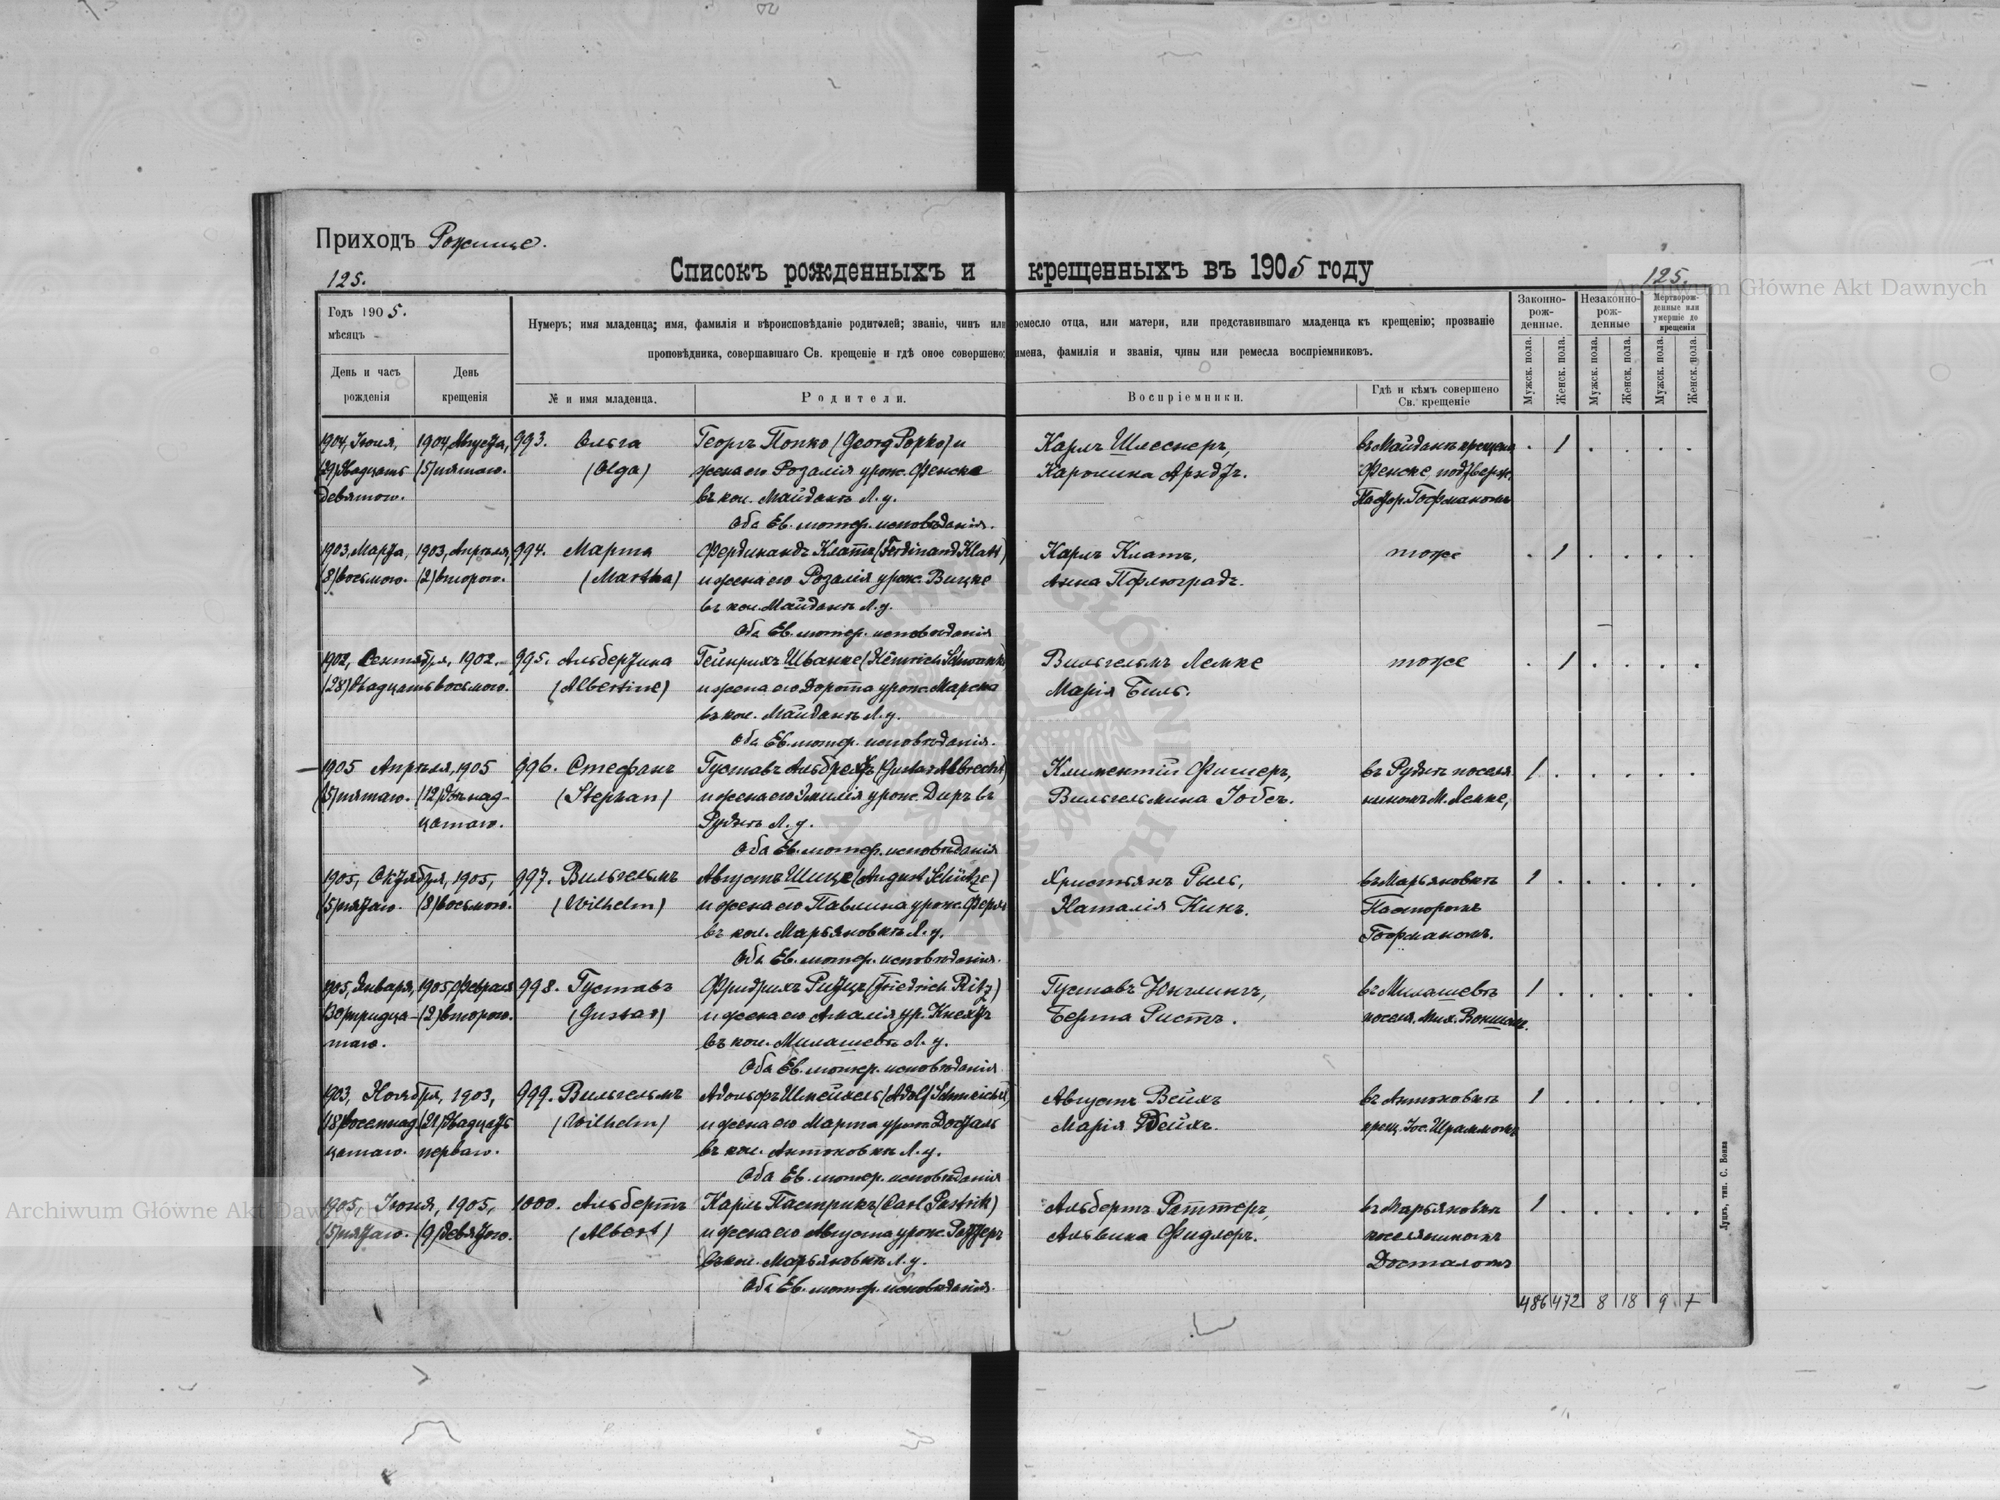 Приходъ Рожище.
125.
Списокъ рожденныхъ и крещенныхъ въ 1905 году
125.
Archiwum Główne Akt Dawnych
Годъ 1905.
мѣсяцъ
День и часъ рожденія
День крещенія
Нумеръ; имя младенца; имя, фамилія и вѣроисповѣданіе родителей; званіе, чинъ или ремесло отца, или матери, или представившаго младенца къ крещенію; прозваніе
проповѣдника, совершавшаго Св. крещеніе и гдѣ оное совершено; имена, фамилія и званія, чины или ремесла воспріемниковъ.
№ и имя младенца.
Родители.
Воспріемники.
Гдѣ и кѣмъ совершено Св. крещеніе
Законно-рож-денные.
Незаконно-рож-денные
Мертворож-денные или умершіе до крещенія
Мужск. пола.
Женск. пола.
Мужск. пола.
Женск. пола.
Мужск. пола.
Женск. пола.
1904, Іюня, 1904, Августа, 993. Ольга Георгъ Попко (Georg Popko) и Карлъ Шлесснеръ, въ Майданѣ крещена . 1 . . . .
(29) двадцать (5) пятаго. (Olga) жена его Розалія урож. Фенске Каролина Арндтъ. Фенске подтвержд.
девятого. въ кол. Майданѣ Л. у. Пастор. Гофманомъ
Оба Ев. лютер. исповѣданія.
1903, Марта, 1903, Апрѣля, 994. Марта Фердинандъ Клаттъ (Ferdinand Klatt) Карлъ Клатъ, тоже . 1 . . . .
(8) восьмого. (2) второго. (Martha) и жена его Розалія урож. Вицке Анна Пфлюградъ.
въ кол. Майданѣ Л. у.
Оба Ев. лютер. исповѣданія
1902, Сентября, 1902. 995. Альбертина Гейнрихъ Шванке (Heinrich Schwanke Вильгельмъ Лемке тоже . 1 . . . .
(28) двадцать восьмого. (Albertine) и жена его Дорота урож. Марска Марія Биль.
въ кол. Майданѣ Л. у.
Оба Ев. лютер. исповѣданія.
1905 Апрѣля, 1905 996. Стефанъ Густавъ Альбрехтъ (Gustav Albrecht) Климентій Фишеръ, въ Рудкѣ поселя 1 . . . . .
(5) пятаго. (12) двѣнад- (Stephan) и жена его Эмилія урож. Диръ въ Вильгельмина Іобсъ. ниномъ М. Лемке,
цатаго. Рудкѣ Л. у.
Оба Ев. лютер. исповѣданія
1905, Октября, 1905, 997. Вильгельмъ Августъ Шице (August Schütze) Христьянъ Рыль, въ Марьяновкѣ 1 . . . . .
(5) пятаго. (8) восьмого. (Wilhelm) и жена его Павлина урож. Наталія Кинъ. Пасторомъ
въ кол. Марьяновкѣ Л. у. Гофманомъ.
Оба Ев. лютер. исповѣданія.
1905, Января, 1905, Февраля 998. Густавъ Фридрихъ Ритцъ (Friedrich Ritz) Густавъ Юнглингъ, въ Милашевѣ 1 . . . . .
(30) тридца- (2) второго. (Gustav) и жена его Амалія ур. Кнехтъ Берта Ристъ. поселя. Мих.
таго. въ кол. Милашевѣ Л. у.
Оба Ев. лютер. исповѣданія
1903, Ноября, 1903, 999. Вильгельмъ Адольфъ Шмейхель (Adolf Schmeichel) Августъ Вейхъ въ Антоновкѣ 1 . . . . .
(18) восемнад (21) двадцать (Wilhelm) и жена его Марта урож. Досталь Марія Вейхъ. крещ. Іос. Шраммомъ
цатаго. перваго. въ кол. Антоновкѣ Л. у.
Оба Ев. лютер. исповѣданія
1905, Іюня, 1905, 1000. Альбертъ Карлъ Пастрикъ (Carl Pastrik) Альбертъ Раттеръ, въ Марьяновкѣ 1 . . . . .
(5) пятаго. (9) девятого. (Albert) и жена его Августа урож. Раттеръ Альвина Фидлеръ. поселяниномъ
въ кол. Марьяновкѣ Л. у. Досталомъ
Оба Ев. лютер. исповѣданія.
486 472 8 18 9 7
Луцкъ, тип. С. Бокка
Archiwum Główne Akt Dawnych